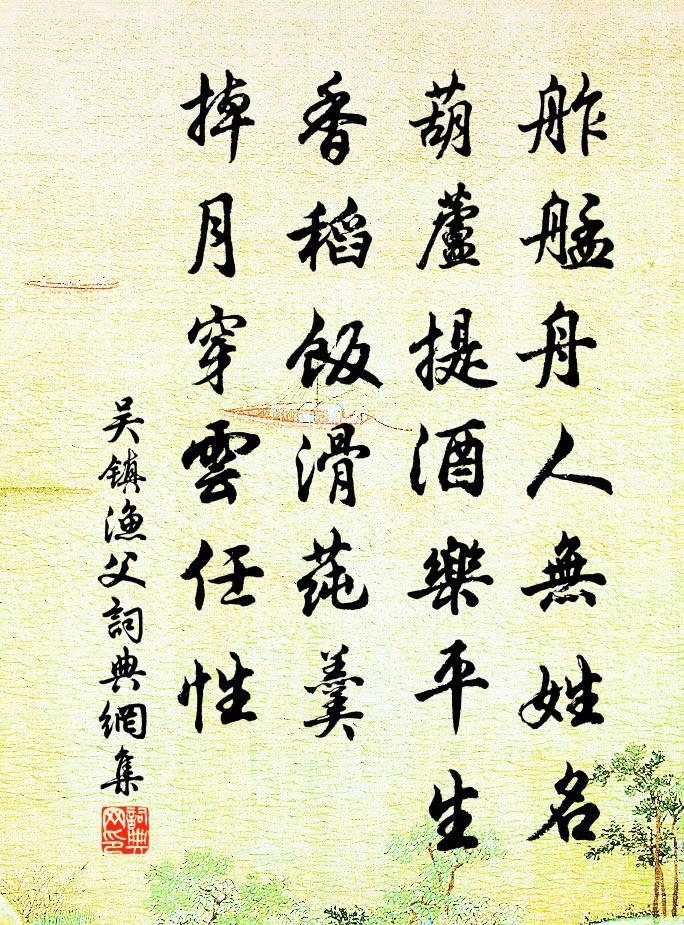 舴艋舟人無姓名
葫蘆提酒樂平生
香稻飯滑莼羹
掉月穿雲任性
吴镇漁父詞典網集
詞典网印